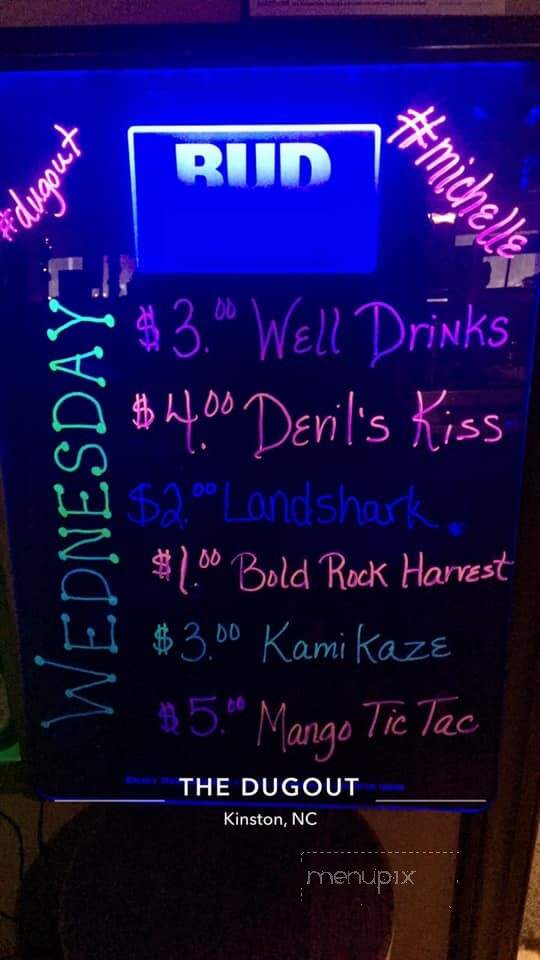 #dugout
BUD
#michelle
WEDNESDAY
$3.00 Well Drinks
$4.00 Devil's Kiss
$2.00 Landshark.
$1.00 Bold Rock Harvest
$3.00 Kamikaze
$5.00 Mango Tic Tac
THE DUGOUT
Kinston, NC
menupix